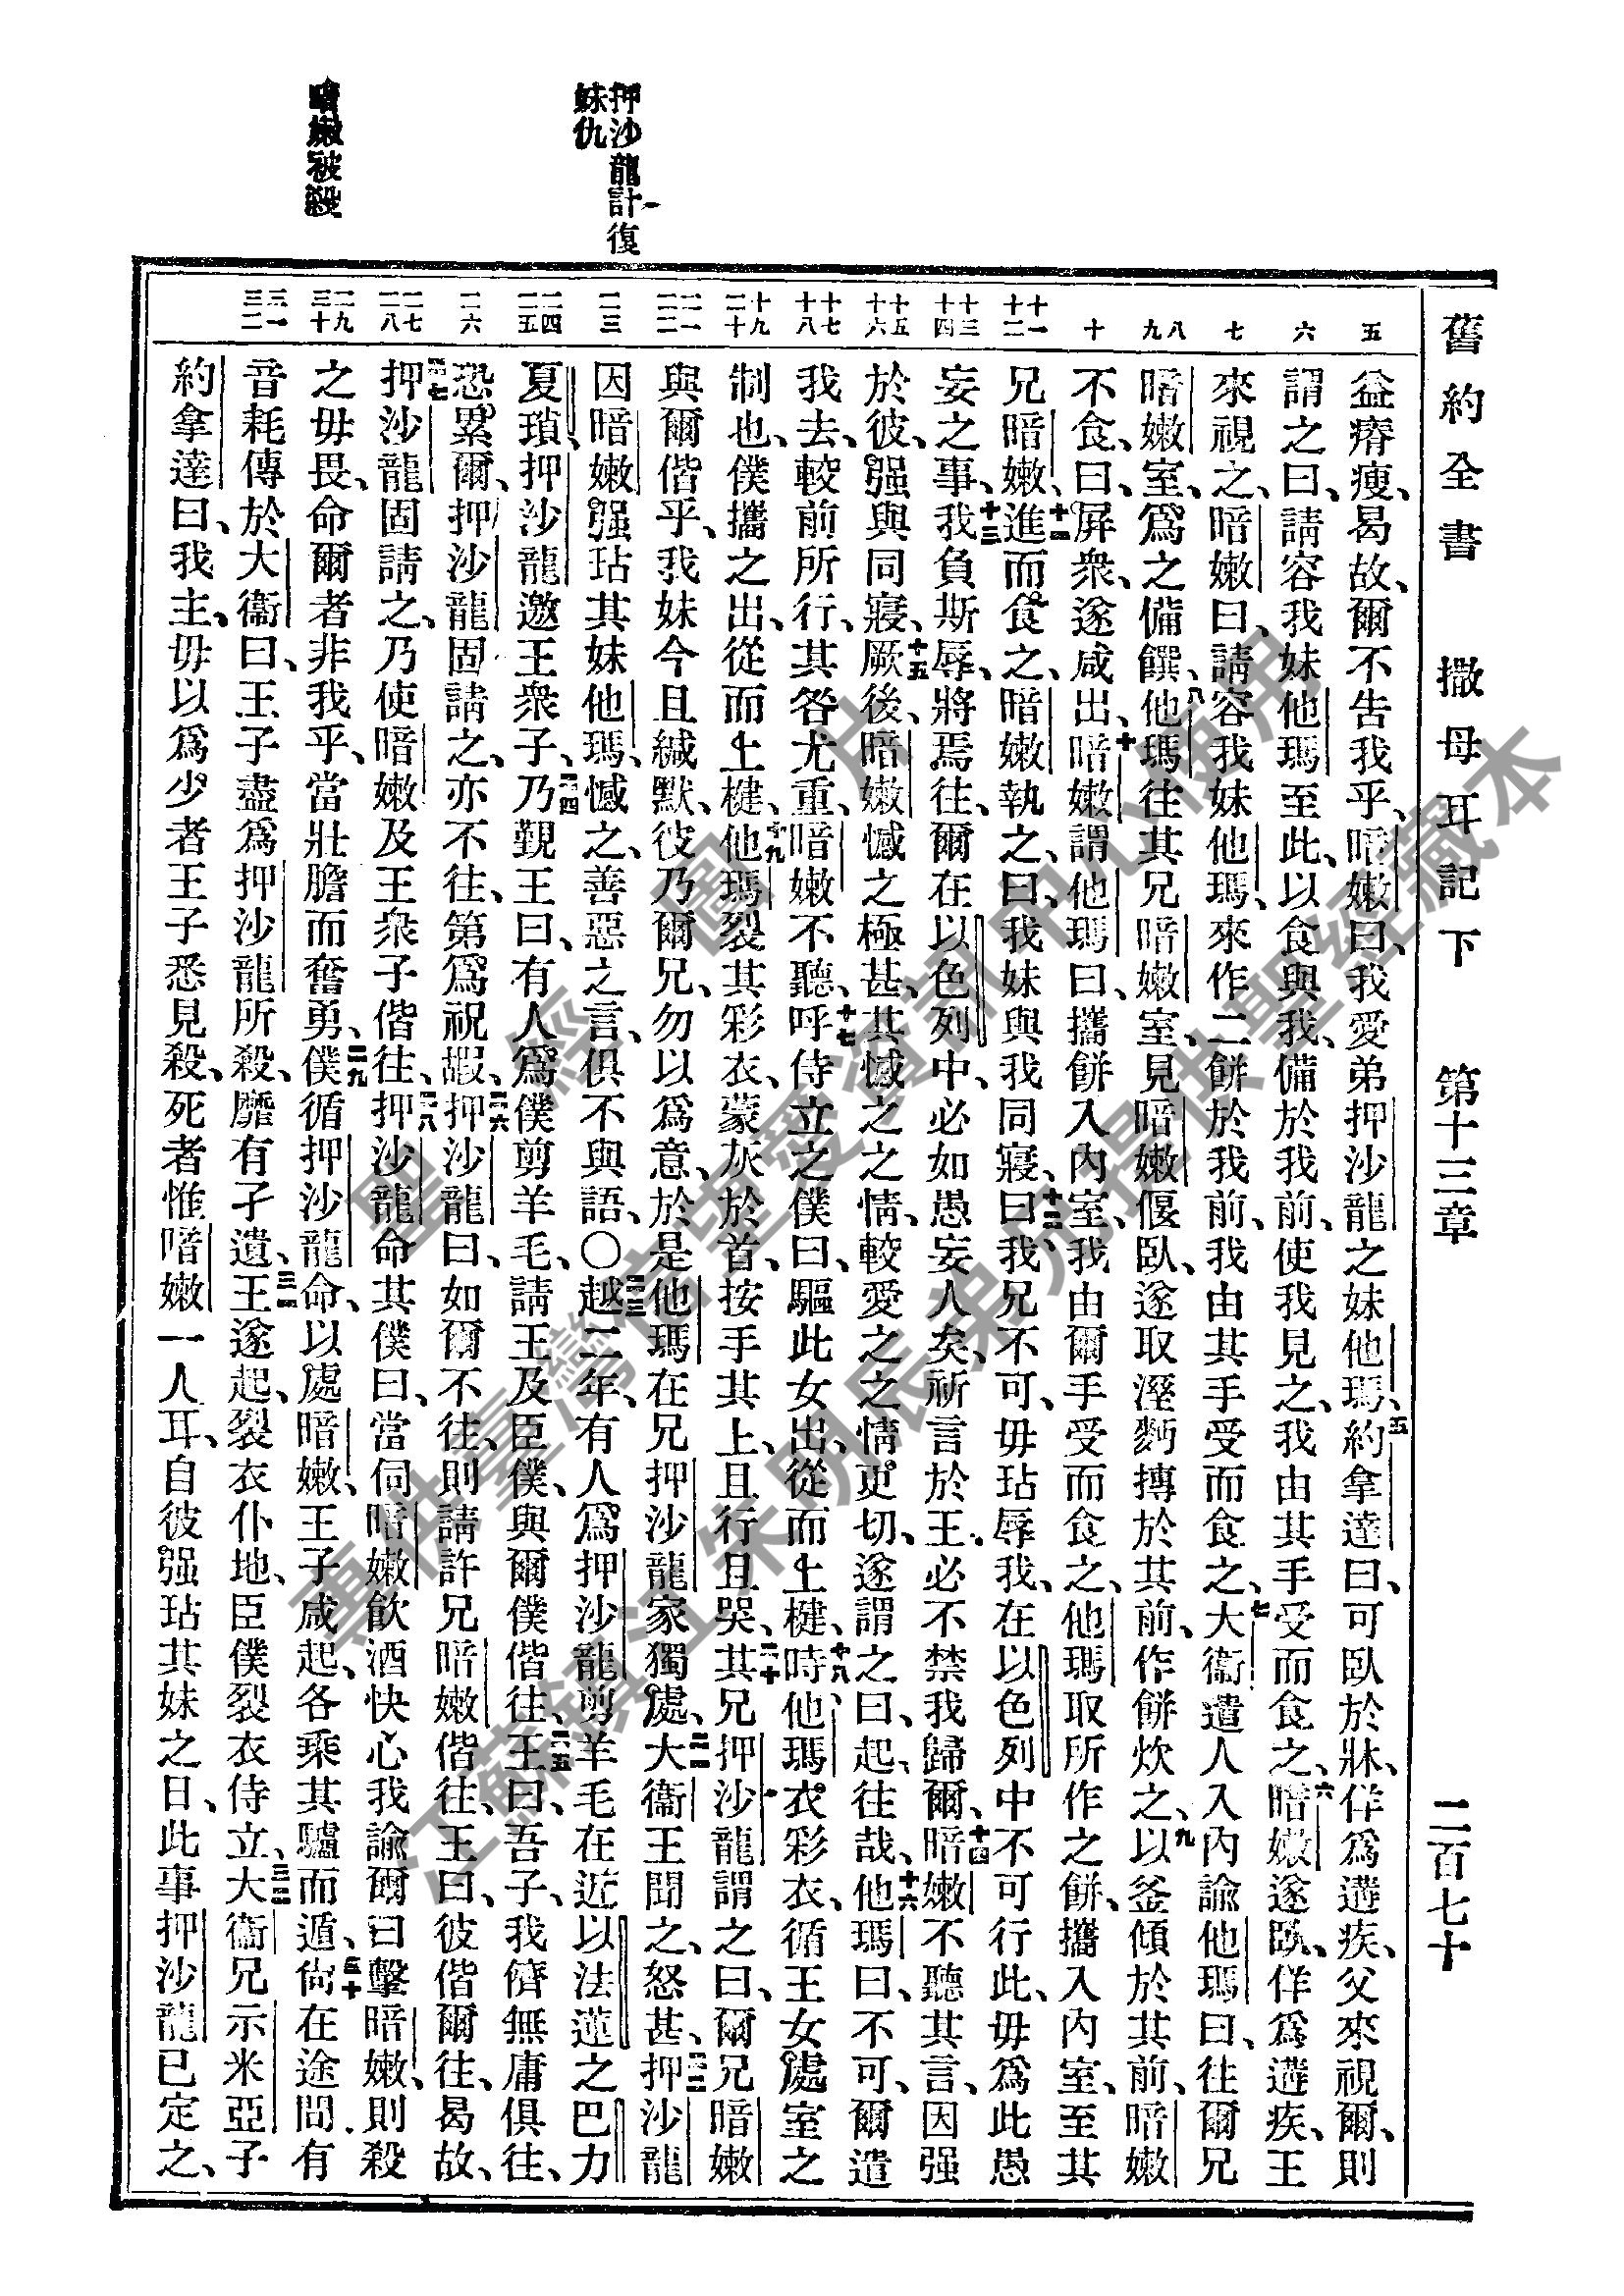 舊約全書　撒母耳記下　第十三章　二百七十
押沙龍計復
妹仇
暗嫩被殺
五
六
七
八
九
十
十一
十二
十三
十四
十五
十六
十七
十八
十九
二十
二一
二二
二三
二四
二五
二六
二七
二八
二九
三十
三一
三二
益瘠瘦、曷故、爾不告我乎、暗嫩曰、我愛弟押沙龍之妹他瑪、五約拿達曰、可臥於牀、佯爲遘疾、父來視爾、則
謂之曰、請容我妹他瑪至此、以食與我、備於我前、使我見之、我由其手受而食之、六暗嫩遂臥、佯爲遘疾、王
來視之、暗嫩曰、請容我妹他瑪、來作二餅於我前、我由其手受而食之、七大衞遣人入內諭他瑪曰、往爾兄
暗嫩室、爲之備饌、八他瑪往其兄暗嫩室、見暗嫩偃臥、遂取溼麪摶於其前、作餅炊之、九以釜傾於其前、暗嫩
不食、曰、屏衆、遂咸出、十暗嫩謂他瑪曰、攜餅入內室、我由爾手受而食之、他瑪取所作之餅、攜入內室、至其
兄暗嫩、十一進而食之、暗嫩執之、曰、我妹與我同寢、十二曰、我兄不可、毋玷辱我、在以色列中不可行此、毋爲此愚
妄之事、十三我負斯辱、將焉往、爾在以色列中、必如愚妄人矣、祈言於王、必不禁我歸爾、十四暗嫩不聽其言、因强
於彼、强與同寢、十五厥後、暗嫩憾之極甚、其憾之之情、較愛之之情更切、遂謂之曰、起、往哉、十六他瑪曰、不可、爾遣
我去、較前所行、其咎尤重、暗嫩不聽、十七呼侍立之僕曰、驅此女出、從而上楗、十八時他瑪衣彩衣、循王女處室之
制也、僕攜之出、從而上楗、十九他瑪裂其彩衣、蒙灰於首、按手其上、且行且哭、二十其兄押沙龍謂之曰、爾兄暗嫩
與爾偕乎、我妹今且緘默、彼乃爾兄、勿以爲意、於是他瑪在兄押沙龍家獨處、二一大衞王聞之、怒甚、二二押沙龍
因暗嫩强玷其妹他瑪、憾之、善惡之言、俱不與語、〇二三越二年、有人爲押沙龍剪羊毛在近以法蓮之巴力
夏瑣、押沙龍邀王衆子、二四乃覲王曰、有人爲僕剪羊毛、請王及臣僕、與爾僕偕往、二五王曰、吾子、我儕無庸俱往、
恐累爾、押沙龍固請之、亦不往、第爲祝嘏、二六押沙龍曰、如爾不往、則請許兄暗嫩偕往、王曰、彼偕爾往、曷故、
二七押沙龍固請之、乃使暗嫩及王衆子偕往、二八押沙龍命其僕曰、當伺暗嫩飮酒快心、我諭爾曰擊暗嫩、則殺
之毋畏、命爾者非我乎、當壯膽而奮勇、二九僕循押沙龍命、以處暗嫩、王子咸起、各乘其驢而遁、三十尙在途間、有
音耗傳於大衞曰、王子盡爲押沙龍所殺、靡有孑遺、三一王遂起、裂衣仆地、臣僕裂衣侍立、三二大衞兄示米亞子
約拿達曰、我主、毋以爲少者王子悉見殺、死者惟暗嫩一人耳、自彼强玷其妹之日、此事押沙龍已定之、
聖經圖片
專供臺灣信望愛資訊中心使用
江蘇鎮江朱明辰弟兄提供聖經藏本